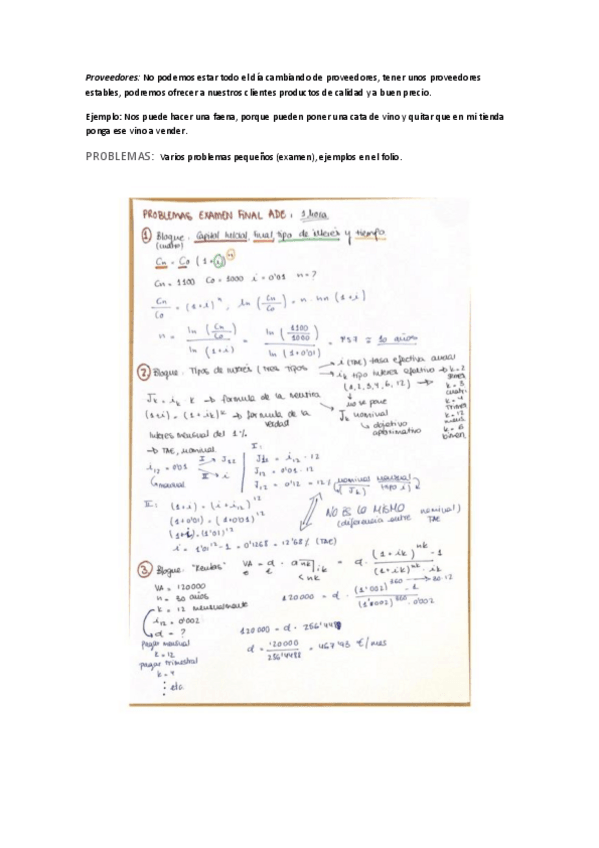 Proveedores: No podemos estar todo el día cambiando de proveedores, tener unos proveedores
estables, podremos ofrecer a nuestros clientes productos de calidad y a buen precio.
Ejemplo: Nos puede hacer una faena, porque pueden poner una cata de vino y quitar que en mi tienda
ponga ese vino a vender.
PROBLEMAS: Varios problemas pequeños (examen), ejemplos en el folio.
PROBLEMAS EXAMEN FINAL ADE: 1 hora
① Bloque: Capital inicial, final, tipo de interés y tiempo
(cuatro)
Cn = Co (1+i)^n
Cn = 1100 Co = 1000 i = 0'01 n = ?
Cn/Co = (1+i)^n, ln (Cn/Co) = n · ln (1+i)
n = ln (Cn/Co) / ln (1+i) = ln (1100/1000) / ln (1+0'01) = 10 años
② Bloque: Tipos de interés (tres tipos
i (TAE) tasa efectiva anual
ik tipo interés efectivo
(1, 2, 3, 4, 6, 12)
k = 2
k = 3
cuatri
k = 4
trimes
k = 12
k = 6
no se pone
Jk nominal
objetivo
aproximativo
Jk = ik · k → formula de la mentira
(1+i) = (1+ik)^k → formula de la
verdad
Interés mensual del 1%
→ TAE, nominal
i12 = 0'01
I → J12
II → i
I:
Jk = i12 · 12
J12 = 0'01 · 12
J12 = 0'12 = 12%
II: (1+i) = (1+i12)^12
(1+i) = (1'01)^12
i = 1'01^12 - 1 = 0'1268 = 12'68% (TAE)
NO ES LO MISMO
(diferencia entre nominal)
TAE
③ Bloque: "Rentas"
VA = 120000
n = 30 años
k = 12 mensualmente
i12 = 0'002
d = ?
pagar mensual
k = 12
pagar trimestral
k = 4
⋮ etc.
120000 = d · (1'002)^360 - 1 / (1'002)^360 · 0'002
360 → 30·12
120000 = d · 256'4488
d = 120000 / 256'4488 = 467'93 €/mes